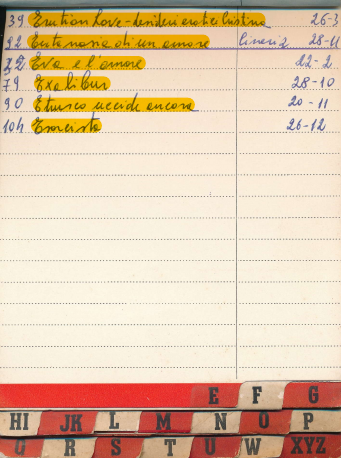 39 Erection Love-desideri erotici Cristina 26-3
92 Eutanasia di un amore Cineriz 28-11
32 Eva e l'amore 22-2
79 Excalibur 28-10
90 Etrusco uccide ancora 20-11
104 Esorcista 26-12
E F G
HI JK L M N O P
Q R S T U W XYZ